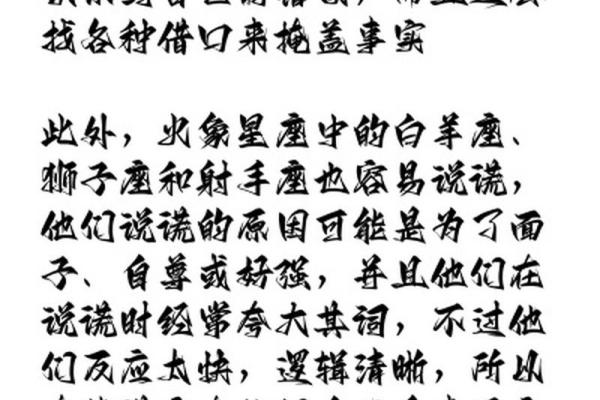 找各种借口来掩盖事实
此外，火象星座中的白羊座、
狮子座和射手座也容易说谎，
他们说谎的原因可能是为了面
子、自尊或好强，并且他们在
说谎时经常夸大其词，不过他
们反应太快，逻辑清晰，所以